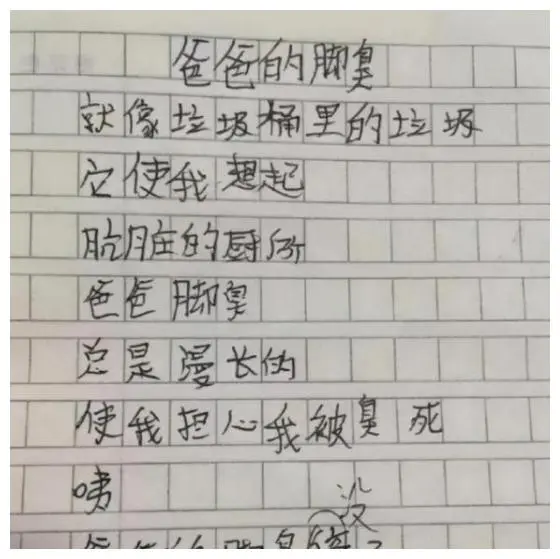 爸爸的脚臭
就像垃圾桶里的垃圾
它使我想起
肮脏的厨所
爸爸脚臭
总是漫长的
使我担心我被臭死
咦
没